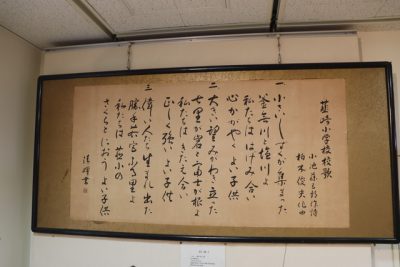 韮崎小学校校歌
小池藤五郎作詩
柏木俊夫作曲
一、小さいしずくが集まった
釜無川と塩川よ
私たちははげみ合い
心かがやくよい子供
二、大きい望みがわき立った
七里が岩と富士が根よ
私たちはきたえ合い
正しく強いよい子供
三、偉い人たち生まれ出た
勝手
ふる里よ
私たちは韮小の
さくらとにおうよい子供